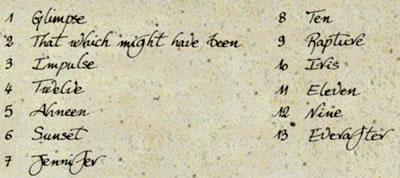 1 Glimpse
2 That which might have been
3 Impulse
4 Twelve
5 Ahneen
6 Sunset
7 Jennifer
8 Ten
9 Rapture
10 Iris
11 Eleven
12 Nine
13 Everafter